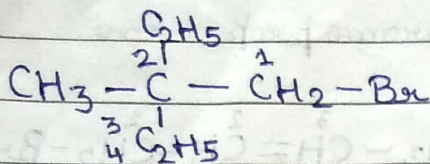 C2H5
2 1
CH3 - C - CH2 - Br
3
4 C2H5